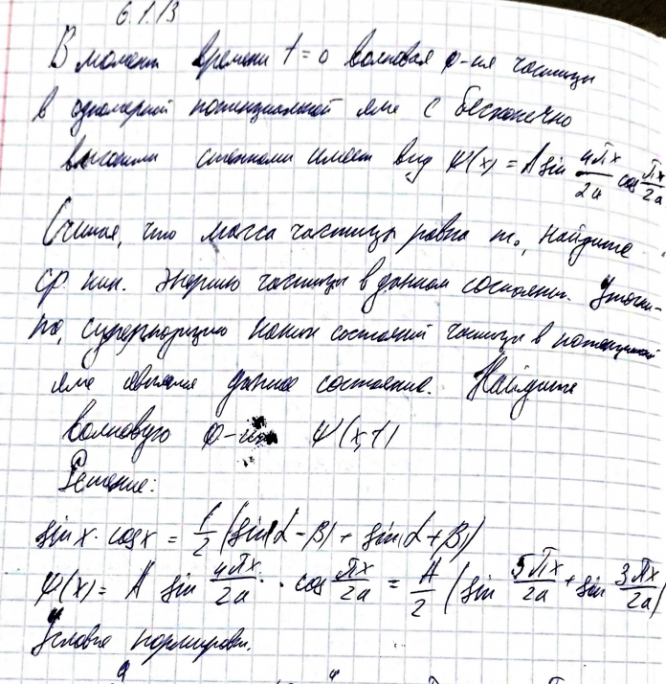 6.1.13
В момент времени t=0 волновая ф-ия частицы
в одномерной потенциальной яме с бесконечно
высокими стенками имеет вид Ψ(x) = A sin 4πx/2a cos πx/2a
Считая, что масса частицы равна m₀, найдите
ср. кин. энергию частицы в данном состоянии. Уточни-
те, суперпозицией каких состояний частицы в потенциальной
яме является данное состояние. Найдите
волновую ф-ию Ψ(x,t)
Решение:
sin x · cos x = 1/2 (sin(α-β) + sin(α+β))
Ψ(x) = A sin 4πx/2a · cos πx/2a = A/2 (sin 5πx/2a + sin 3πx/2a)
Условие нормировки.